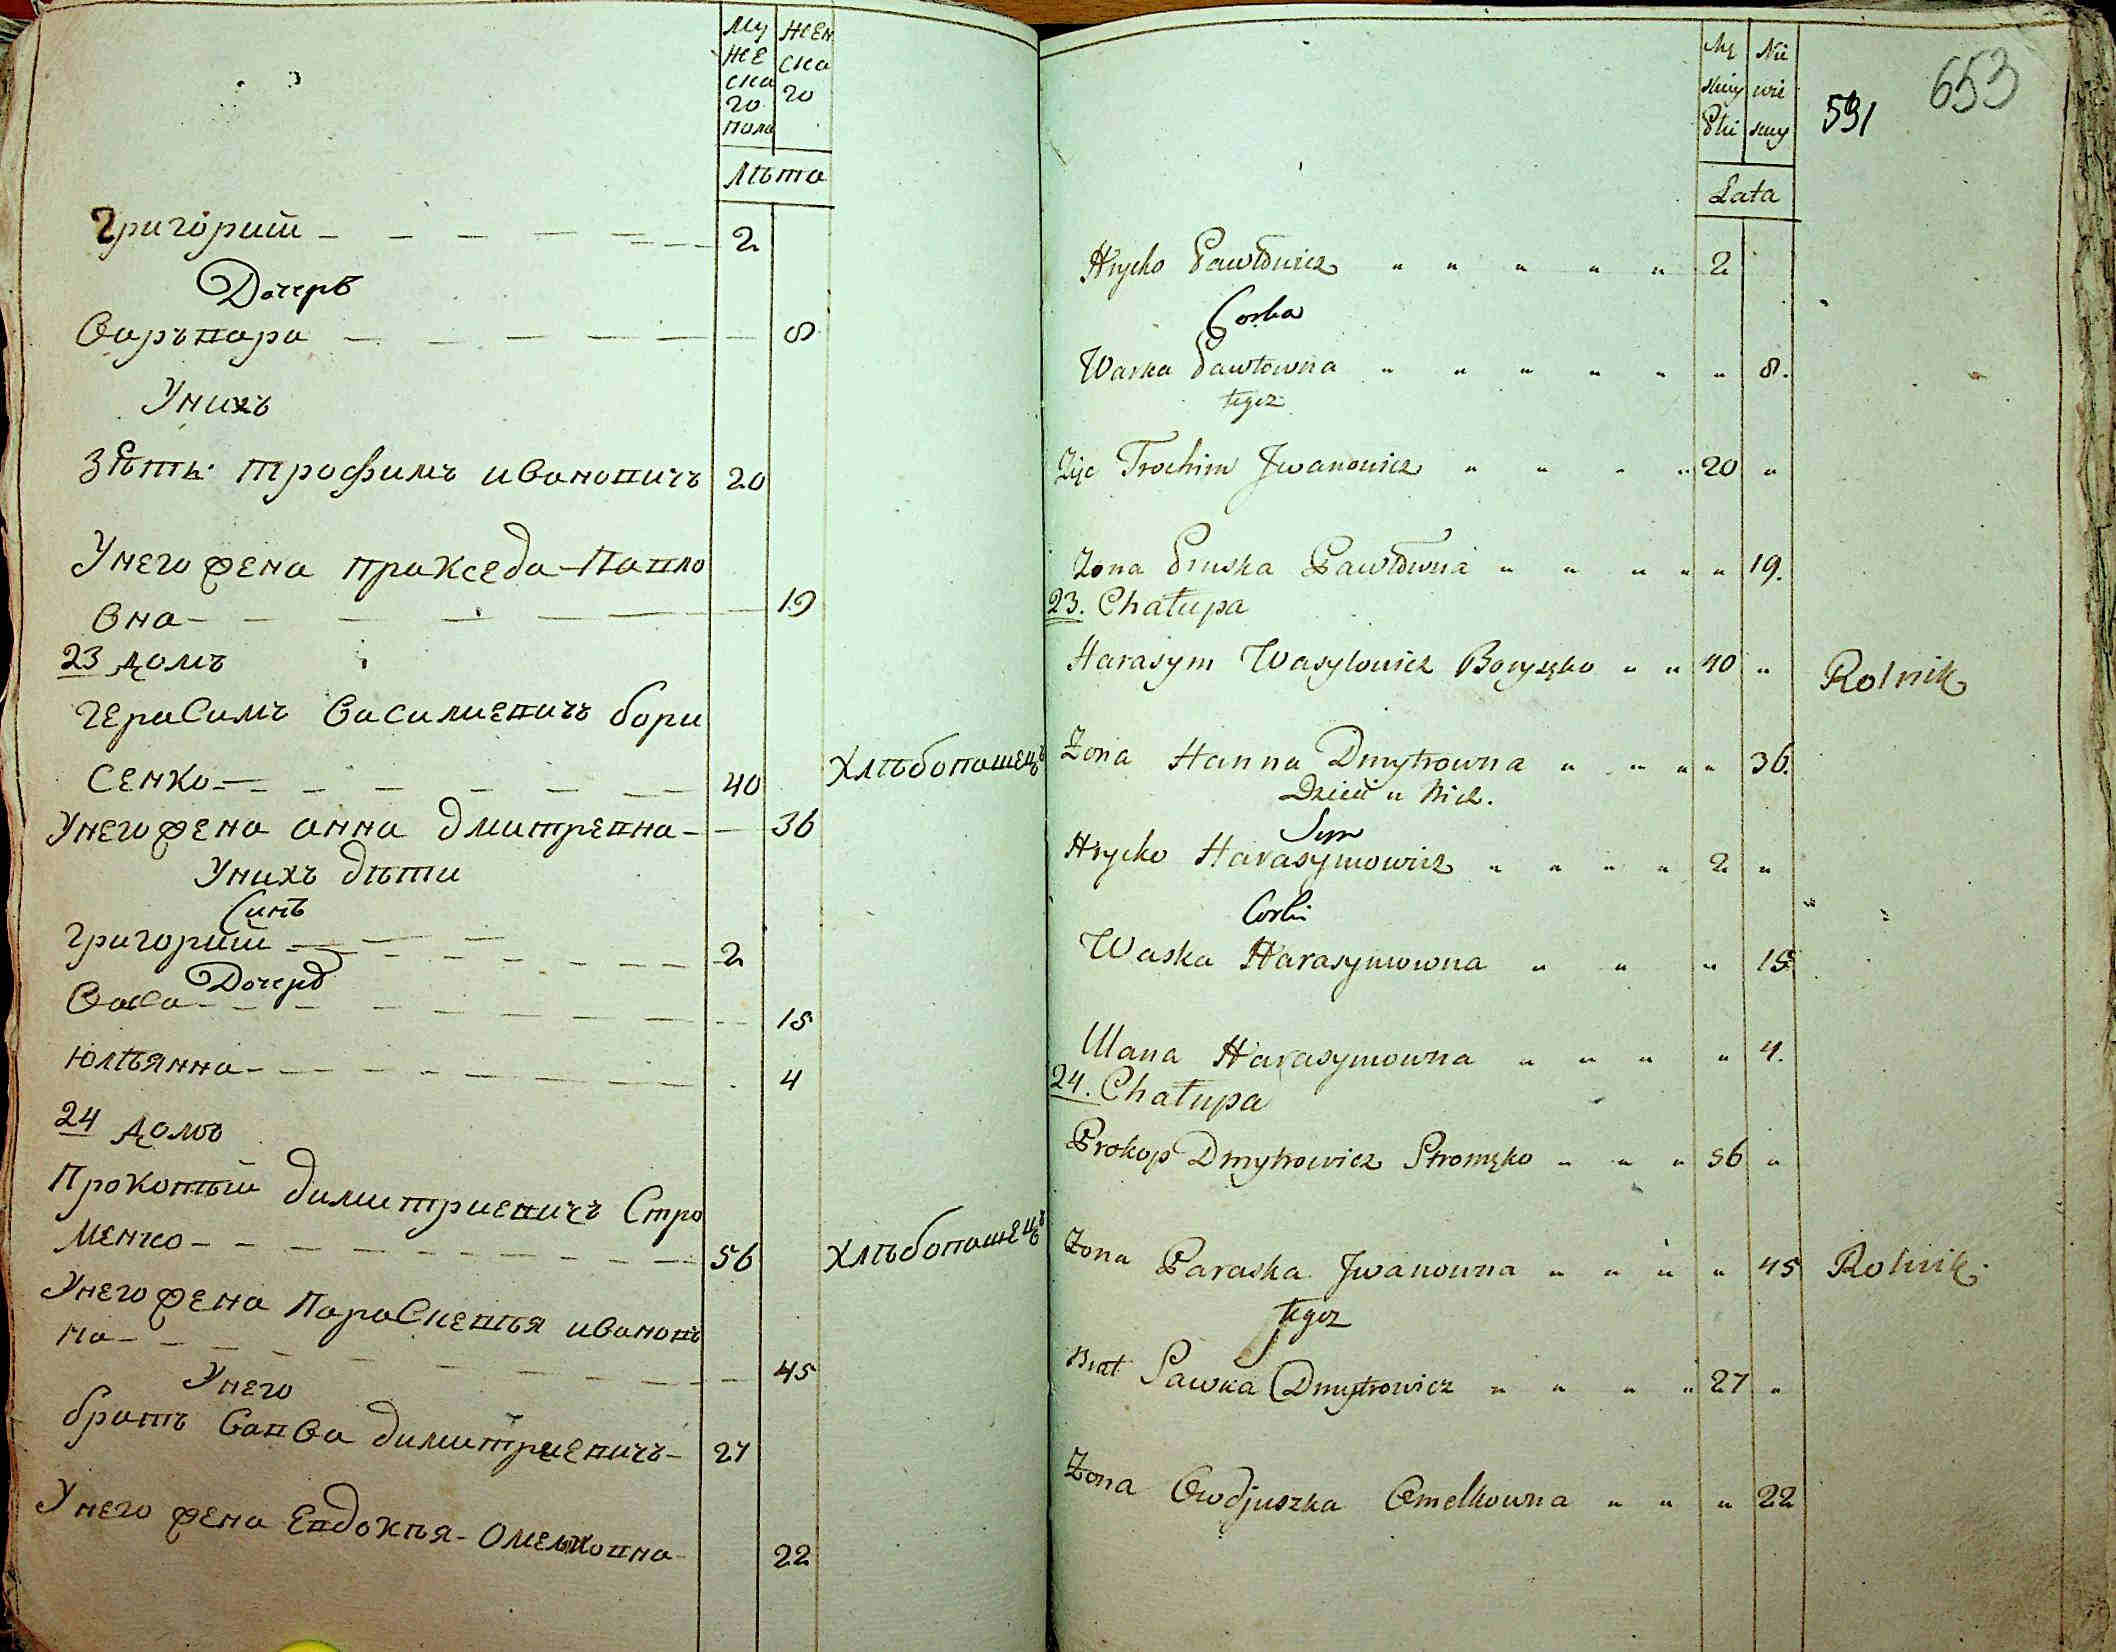 Му
же
ска
го
пола
Жен
ска
го
Лѣта
Григорий 2
Дочерь
Варъвара 8
У нихъ
Зѣть Трофимъ Ивановичъ 20
У него жена Пракседа Павло
вна 19
23 Домъ
Герасимъ Василиевичъ Бори
сенко 40 Хлѣбопашецъ
У него жена Анна Дмитревна 36
У нихъ дѣти
Синъ
Григорий 2
Дочерь
Васса 15
Юлѣянна 4
24 Домъ
Прокопѣй Димитриевичъ Стро
менко 56 Хлѣбопашецъ
У него жена Параскевѣя Ивановъ
на 45
У него
братъ Савва Димитриевичъ 27
У него жена Евдокѣя Омелковна 22
Mę
skiey
Płci
Nie
wie
skiey
591
653
Lata
Hrycko Pawłowicz 2
Corka
Warka Pawłowna 8.
tegoz
Zięc Trochim Jwanowicz 20
Zona Pruska Pawłowna 19.
23. Chałupa
Harasym Wasylowicz Boryszko 40 Rolnik
Zona Hanna Dmytrowna 36.
Dzieci u Nich.
Syn
Hrycko Harasymowicz 2
Corki
Waska Harasymowna 15
Ulana Harasymowna 4.
24. Chałupa
Prokop Dmytrowicz Stromęko 56
Zona Paraska Jwanowna 45 Rolnik
tegoz
Brat Sawka Dmytrowicz 27
Zona Owdjuszka Omelkowna 22